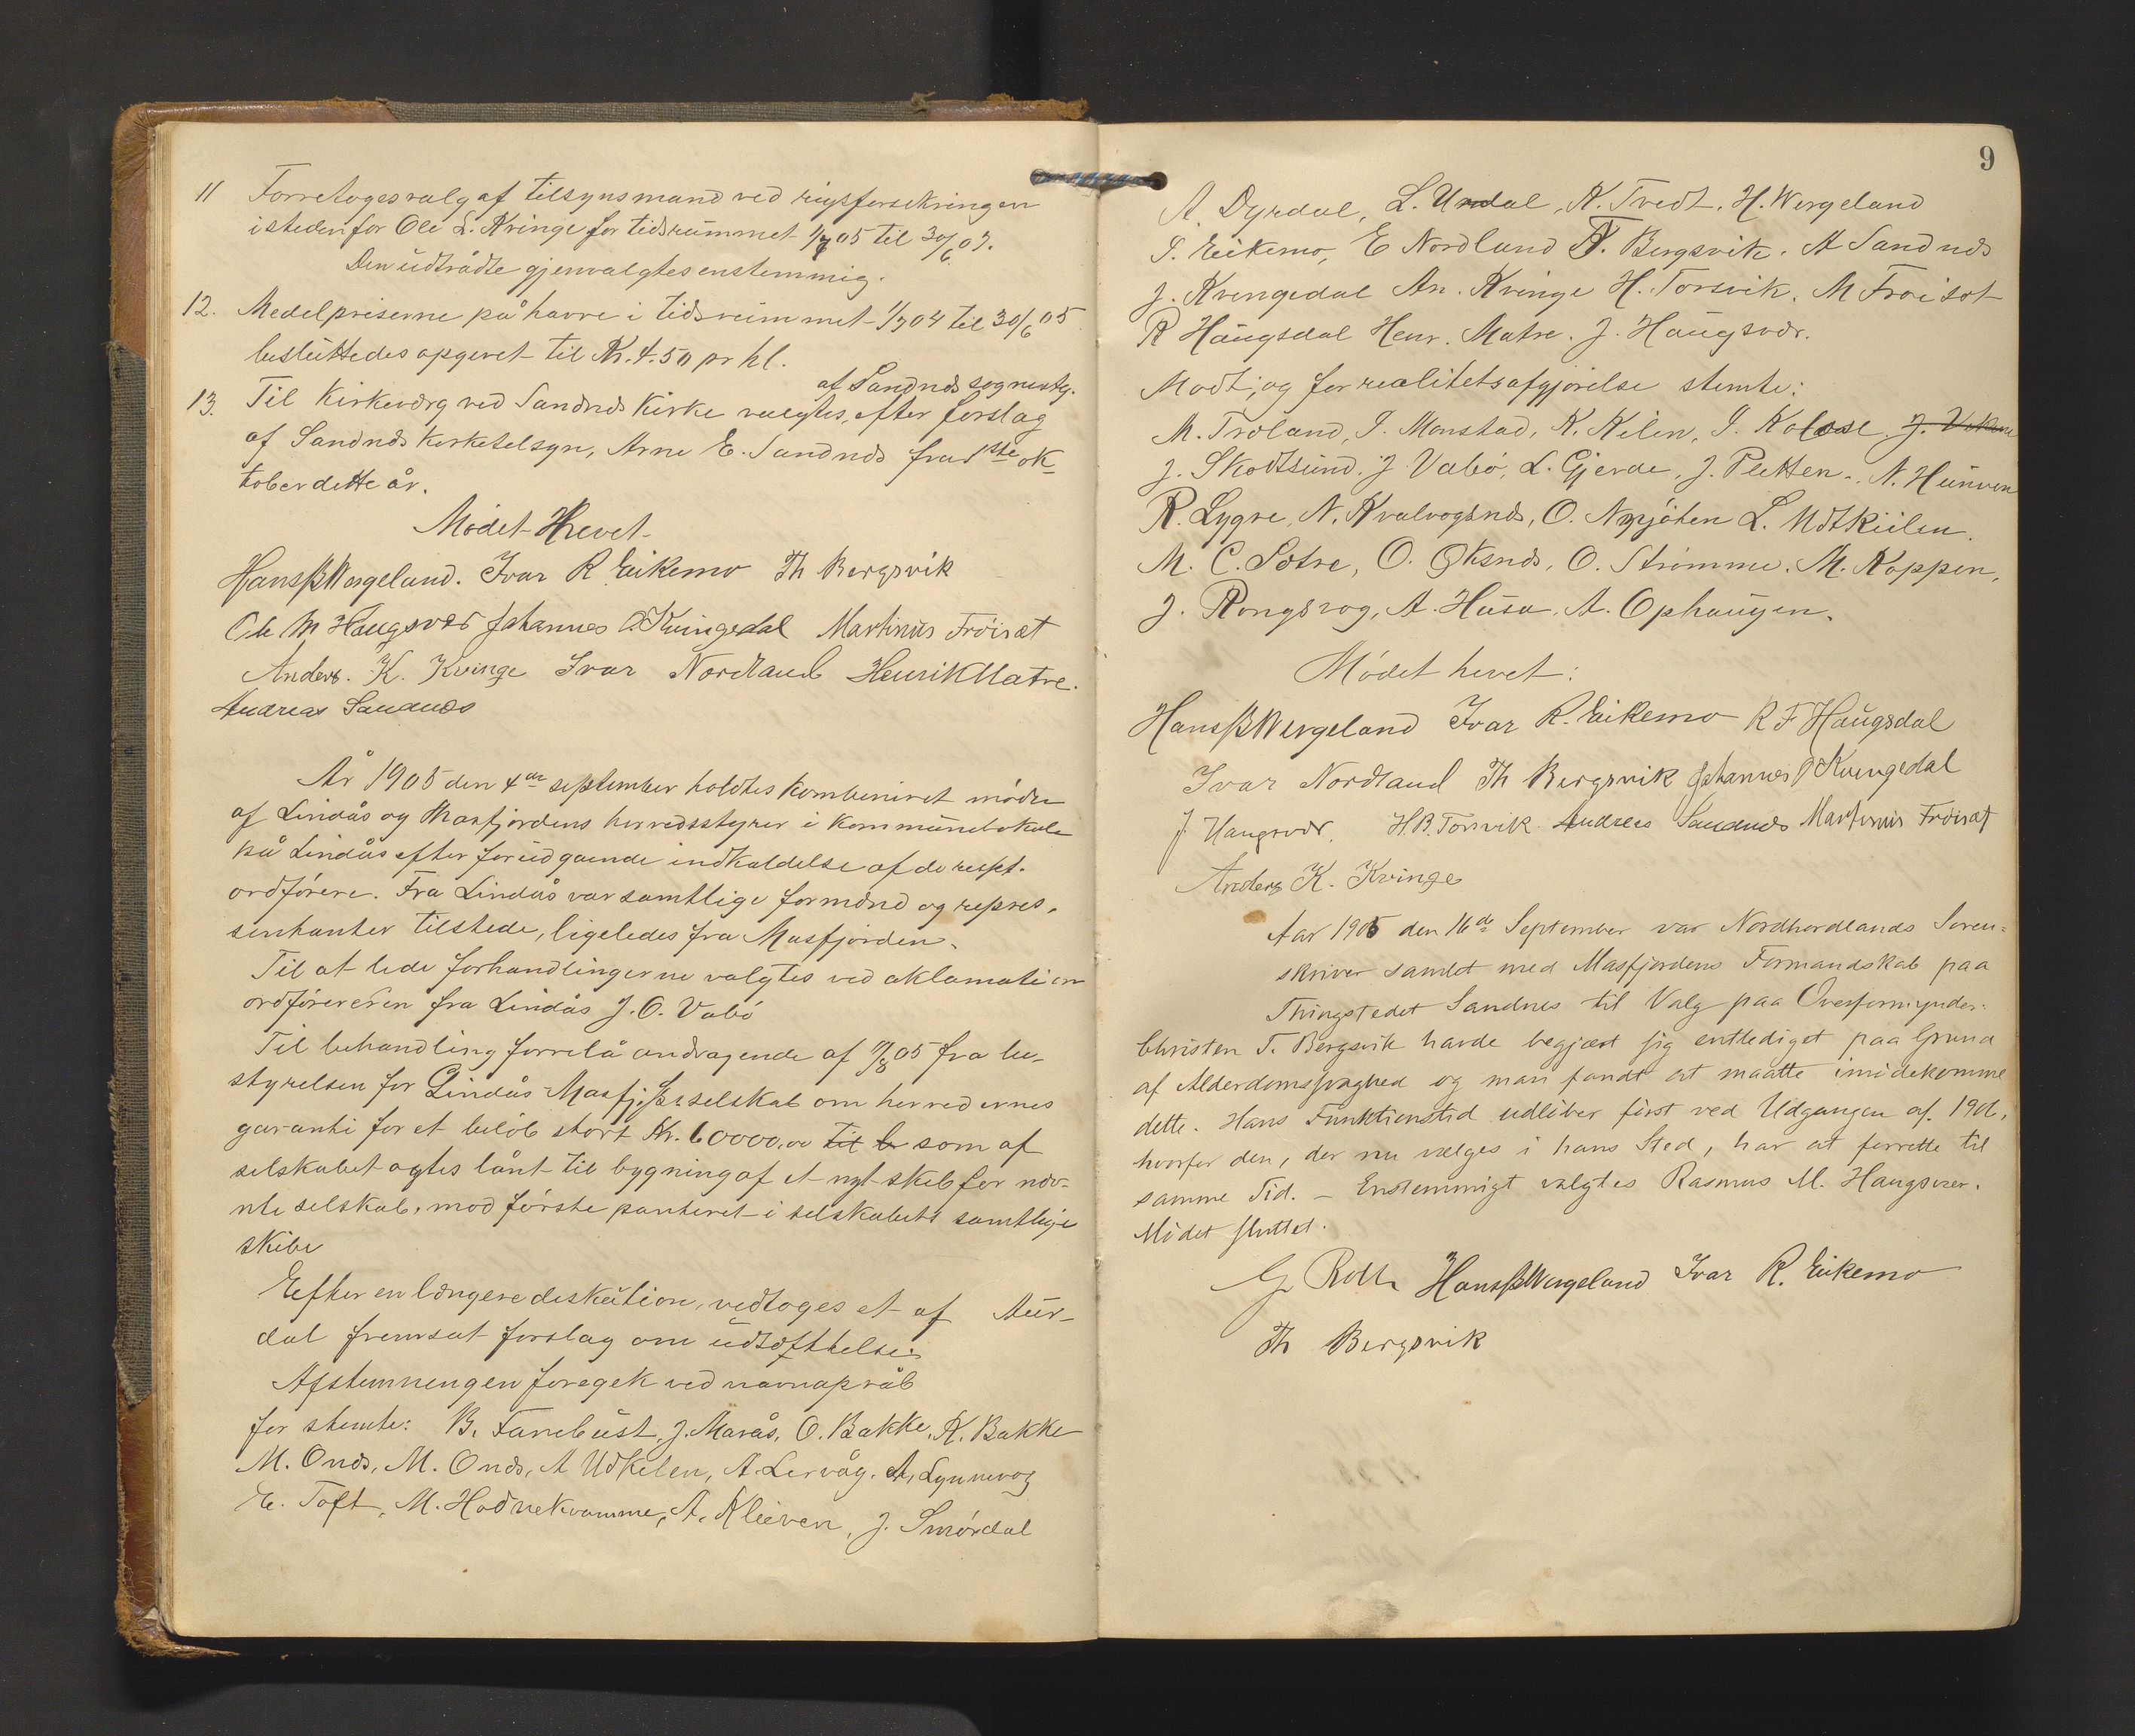 11 Forretoges valg af tilsynsmand ved rigsforsikringen
isteden for Ole L. Kvinge for tidsrummet 1/7 05 til 30/6 07.
Den udtrådte gjenvalgtes enstemmig.
12. Medelpriserne på havre i tidsrummet 1/7 04 til 30/6 05
besluttedes opgivet til Kr. 4.50 pr hl.
af Sandnæs sognestyr.
13. Til Kirkeværg ved Sandnæs Kirke valgtes, efter forslag
af Sandnæs Kirketelsyn, Arne E. Sandnæs fra 1ste ok-
tober dette år.
Mødet Hævet.
Hans B Wergeland. Ivar R Eikemo Th Bergsvik
Ole M Haugsvær Johannes O. Kvingedal Martinus Frøiset
Anders. K. Kvinge Ivar Nordland Henrik Matre.
Andreas Sandnæs
År 1905 den 4de september holdtes kombineret møde
af Lindås og Masfjordens herredsstyrer i kommunelokale
på Lindås efter forudgaende indkaldelse af de respt.
ordførere. Fra Lindås var samtlige formænd og repræ-
sentanter tilstede, ligeledes fra Masfjorden.
Til at lede forhandlingerne valgtes ved aklamation
ordføreren fra Lindås J. O. Vabø
Til behandling forrelå andragende af 11/8 05 fra be-
styrelsen for Lindås-Masfj. Ds.selskab om herredernes
garanti for et beløb stort Kr. 60000,00 til b som af
selskabet agtes lånt til bygning af et nyt skib for næv-
nte selskab, mod første panteret i selskabets samtlige
skibe
Eefter en længere diskution, vedtoges et af Aur-
dal fremsat forslag om udsættelse.
Afstemnengen foregek ved navnapråb
for stemte: B. Fanebust, J. Marås, O. Bakke, K. Bakke
M. Onæs, M. Onæs, A Udkelen, A. Lervåg. A. Lynnevog
E. Toft, M. Hodnekvamme, A. Kleiven, J. Smørdal
9
A. Dyrdal, L. Undal, K. Tvedt, H. Wergeland
I. Eikemo, E Nordland T. Bergsvik. A Sandnæs
J. Kvingedal An. Kvinge H. Torsvik. M Frøiset
R Haugsdal Henr. Matre. J. Haugsvær.
Modt; og for realitetsafgjørelse stemte:
M. Troland, I. Monstad, K. Kilen, I. Kolaas, J. Vikene
J. Skodtsund. J Vabø, L. Gjerde, J. Pletten. N. Hunven
R. Lygre, N. Kvalvognæs, O. Nyjøten L. Udtkiilen.
M. C. Sætre, O. Øksnæs, O. Strømme. M. Koppen,
J. Rongevog, A. Husa. A. Ophaugen.
Mødet hevet:
Hans B Wergeland Ivar R. Eikemo R F Haugsdal
Ivar Nordland Th Bergsvik Johannes O Kvingedal
J Haugsvær. H B. Torsvik Andreas Sandnæs Martinus Frøiset
Anders K. Kvinge
Aar 1905 den 16de September var Nordhordlands Soren-
skriver samlet med Masfjordens Formandskab paa
Thingstedet Sandnes til Valg paa Overformynder.
Christen T. Bergsvik havde begjært sig entlediget paa Grund
af Alderdomssvaghed og man fandt at maatte imødekomme
dette. Hans Funktionstid udløber først ved Udgangen af 1906,
hvorfor den, der nu vælges i hans Sted, har at forrette til
samme Tid. – Enstemmigt valgtes Rasmus M. Haugsvær.
Mødet sluttet.
G Roth Hans B Wergeland Ivar R. Eikemo
Th Bergsvik